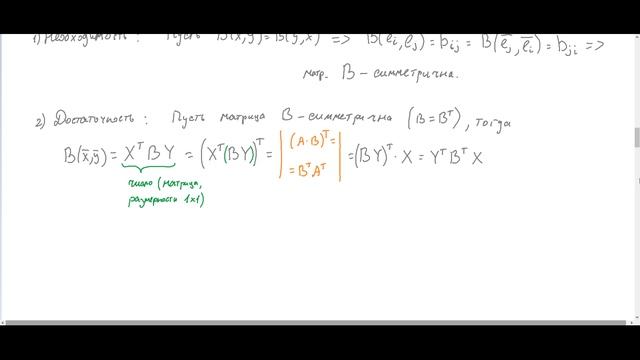 1) Необходимость: Пусть B(x,y)=B(y,x) => B(e̅ᵢ,e̅ⱼ)=bᵢⱼ=B(e̅ⱼ,e̅ᵢ)=bⱼᵢ =>
матр. B – симметрична.
2) Достаточность: Пусть матрица B – симметрична (B=Bᵀ), тогда
B(x̅,y̅) = XᵀBY = (Xᵀ(BY))ᵀ = |(A·B)ᵀ= =BᵀAᵀ| =(BY)ᵀ·X = YᵀBᵀX
число (матрица,
размерности 1x1)